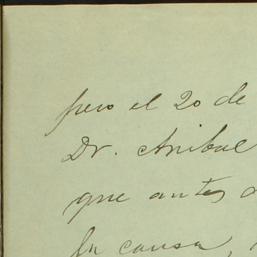 pero el 20 de
Dr. Anibal
que antes
la causa,